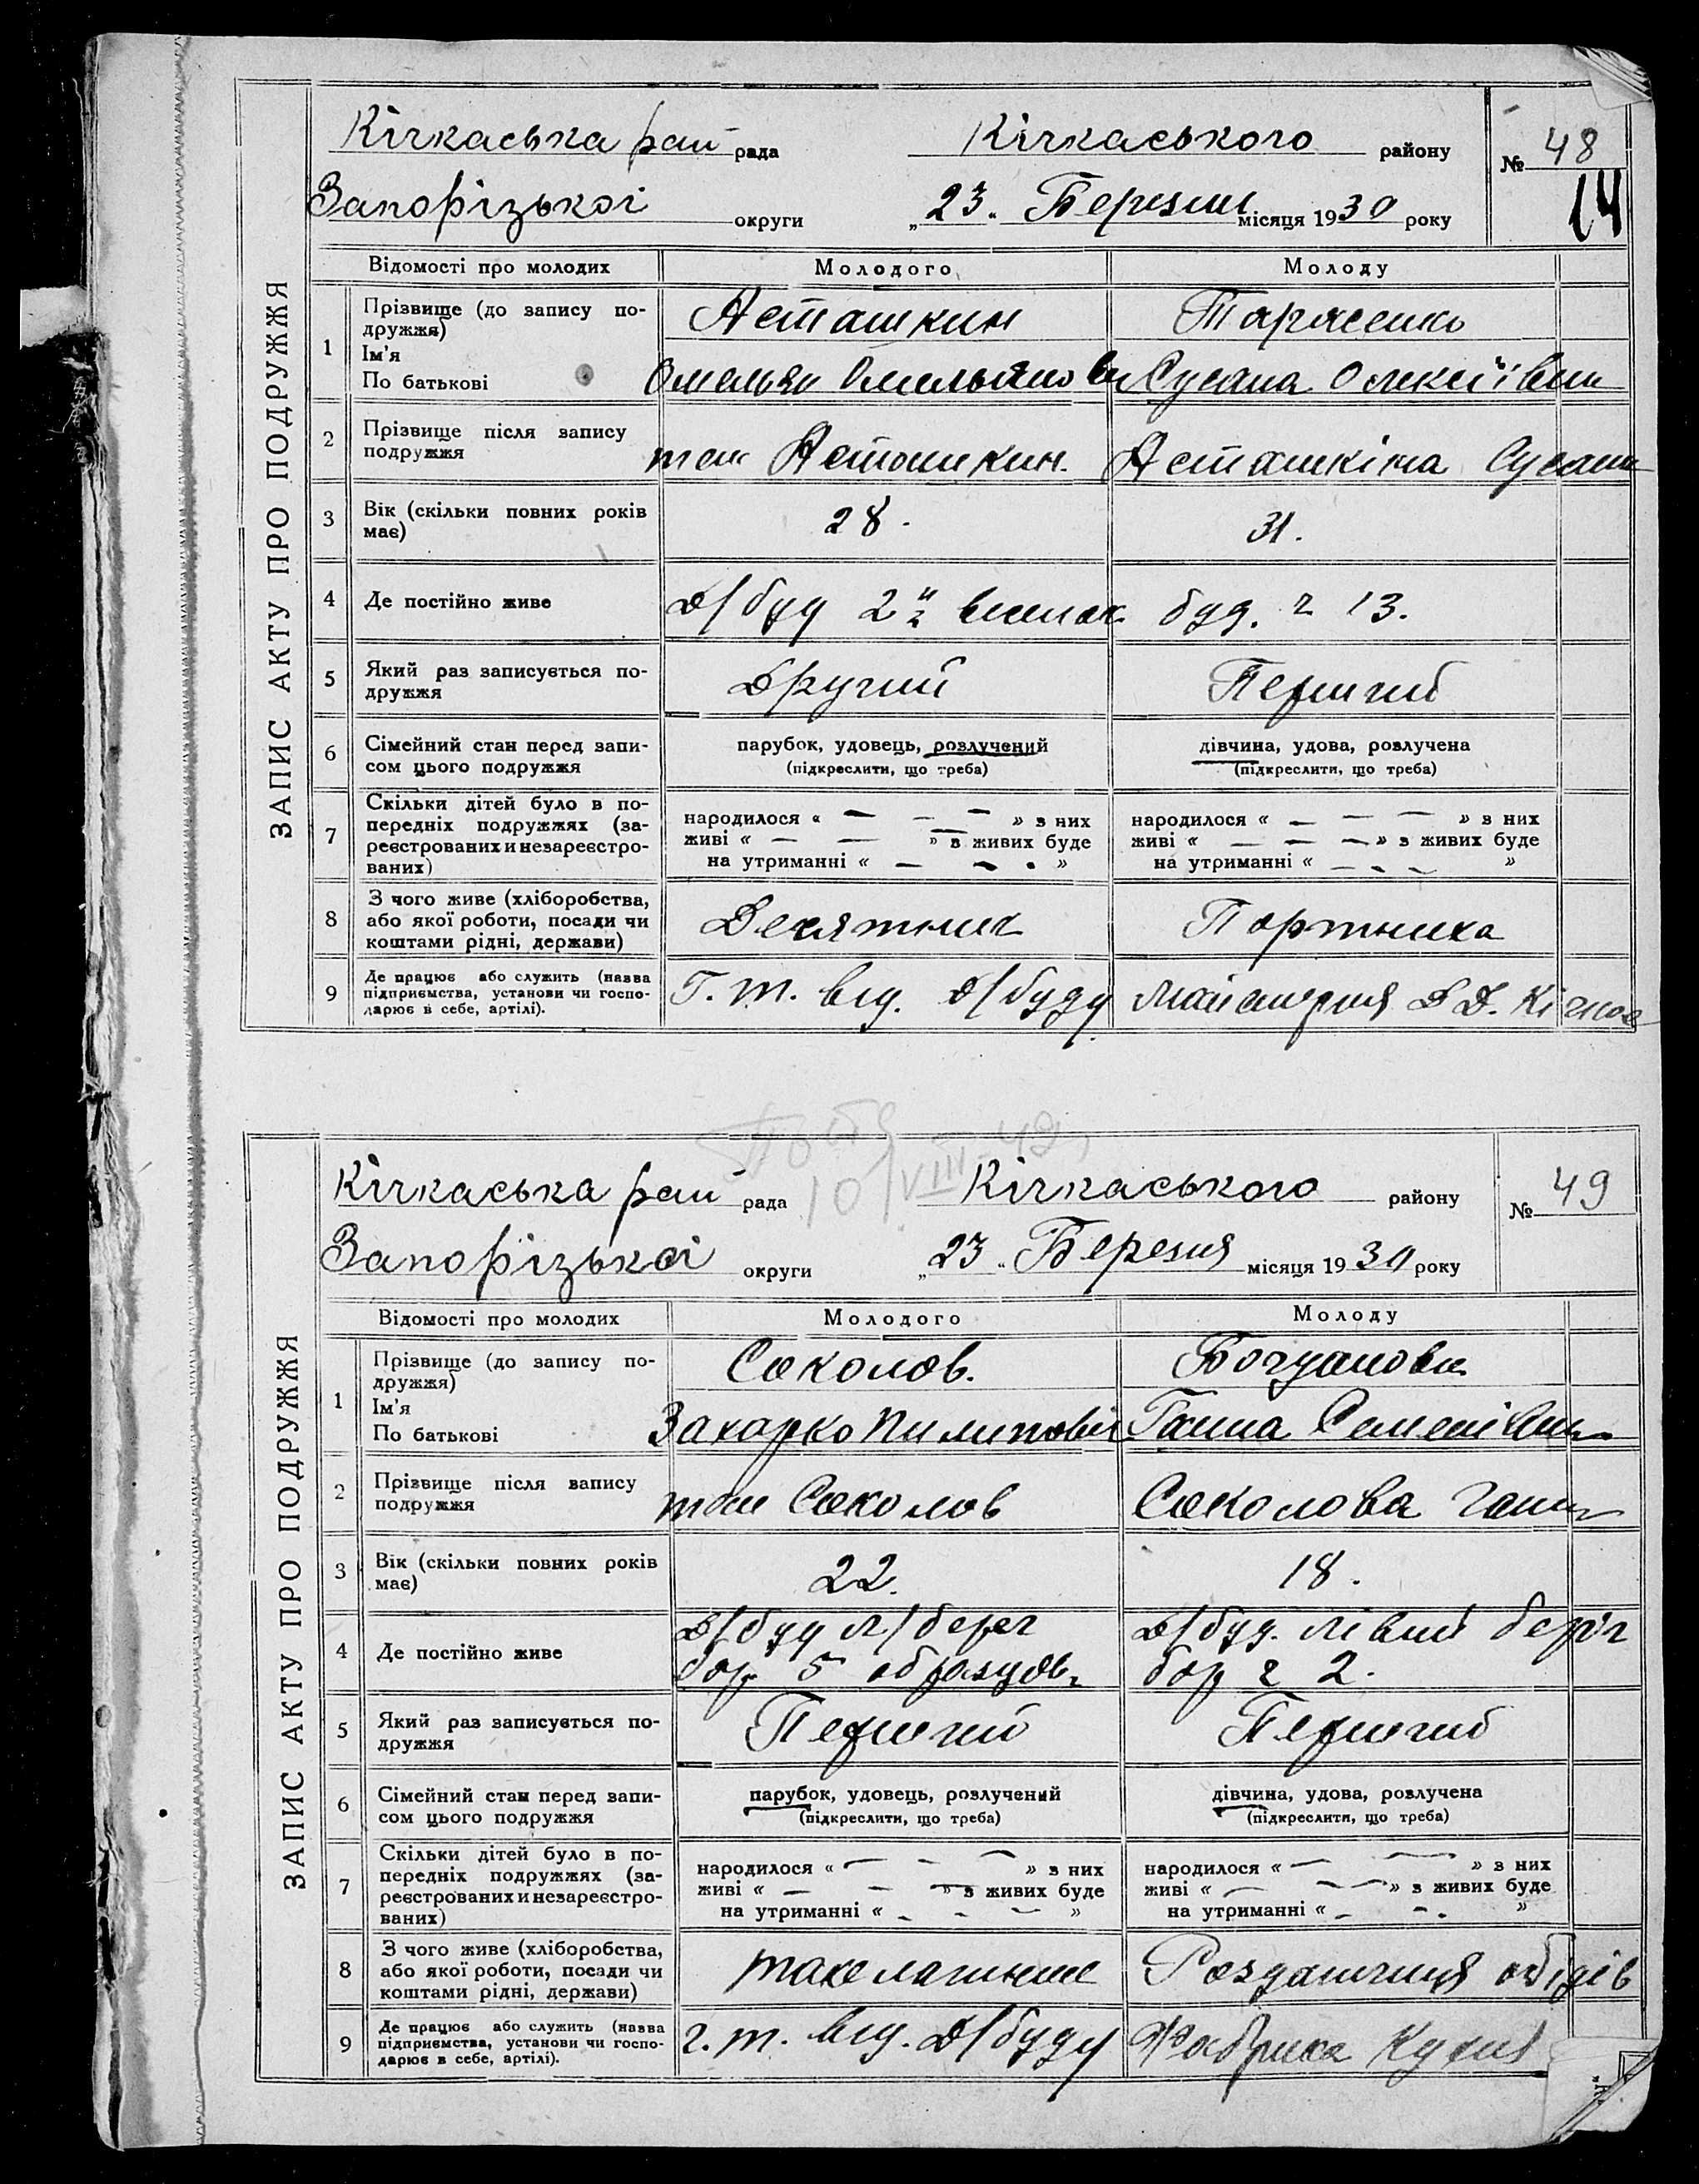 ЗАПИС АКТУ ПРО ПОДРУЖЖЯ
Кічкаська рай рада Кічкаського району № 48
14
Запорізької округи „23" Березня місяця 1930 року
Відомості про молодих Молодого Молоду
1 Прізвище (до запису по-
дружжя)
Ім'я
По батькові
Асташкин Тарасенко
Омельян Омельянов Сусана Олексіївна
2 Прізвище після запису
подружжя
теж Асташкин. Асташкіна Сусана
3 Вік (скільки повних років
має)
28. 31.
4 Де постійно живе
Д/буд 2й буд. ч 13.
5 Який раз записується по-
дружжя
Другий Перший
6 Сімейний стан перед запи-
сом цього подружжя
парубок, удовець, розлучений дівчина, удова, розлучена
(підкреслити, що треба) (підкреслити, що треба)
7 Скільки дітей було в по-
передніх подружжях (за-
реєстрованих и незареєстро-
ваних)
народилося « — — — » з них народилося « — — — » з них
живі « — — — » з живих буде живі « — — — » з живих буде
на утриманні « — - - » на утриманні « — - - »
8 З чого живе (хліборобства,
або якої роботи, посади чи
коштами рідні, держави)
Десятник Портниха
9 Де працює або служить (назва
підприємства, установи чи госпо-
дарює в себе, артілі).
Г. т. від. Д/буду Майстерня Д Д. Кічкас
ЗАПИС АКТУ ПРО ПОДРУЖЖЯ
10/VIII-42
Кічкаська рай рада Кічкаського району № 49
Запорізької округи „23" Березня місяця 1930 року
Відомості про молодих Молодого Молоду
1 Прізвище (до запису по-
дружжя)
Ім'я
По батькові
Соколов. Богданова
Захарко Пилипович Ганна Семенівна
2 Прізвище після запису
подружжя
теж Соколов Соколова Ганна
3 Вік (скільки повних років
має)
22. 18.
4 Де постійно живе
Д/буд л/берег Д/буд. лівий беріг
бар 5 образцов. бар ч 2.
5 Який раз записується по-
дружжя
Перший Перший
6 Сімейний стан перед запи-
сом цього подружжя
парубок, удовець, розлучений дівчина, удова, розлучена
(підкреслити, що треба) (підкреслити, що треба)
7 Скільки дітей було в по-
передніх подружжях (за-
реєстрованих и незареєстро-
ваних)
народилося « — - — » з них народилося « — — » з них
живі « — - — » з живих буде живі « — - — » з живих буде
на утриманні « - - — » на утриманні « - - - »
8 З чого живе (хліборобства,
або якої роботи, посади чи
коштами рідні, держави)
такелажник Роздатчиця обідів
9 Де працює або служить (назва
підприємства, установи чи госпо-
дарює в себе, артілі).
г. т. від. Д/буду Фабрика Кухня